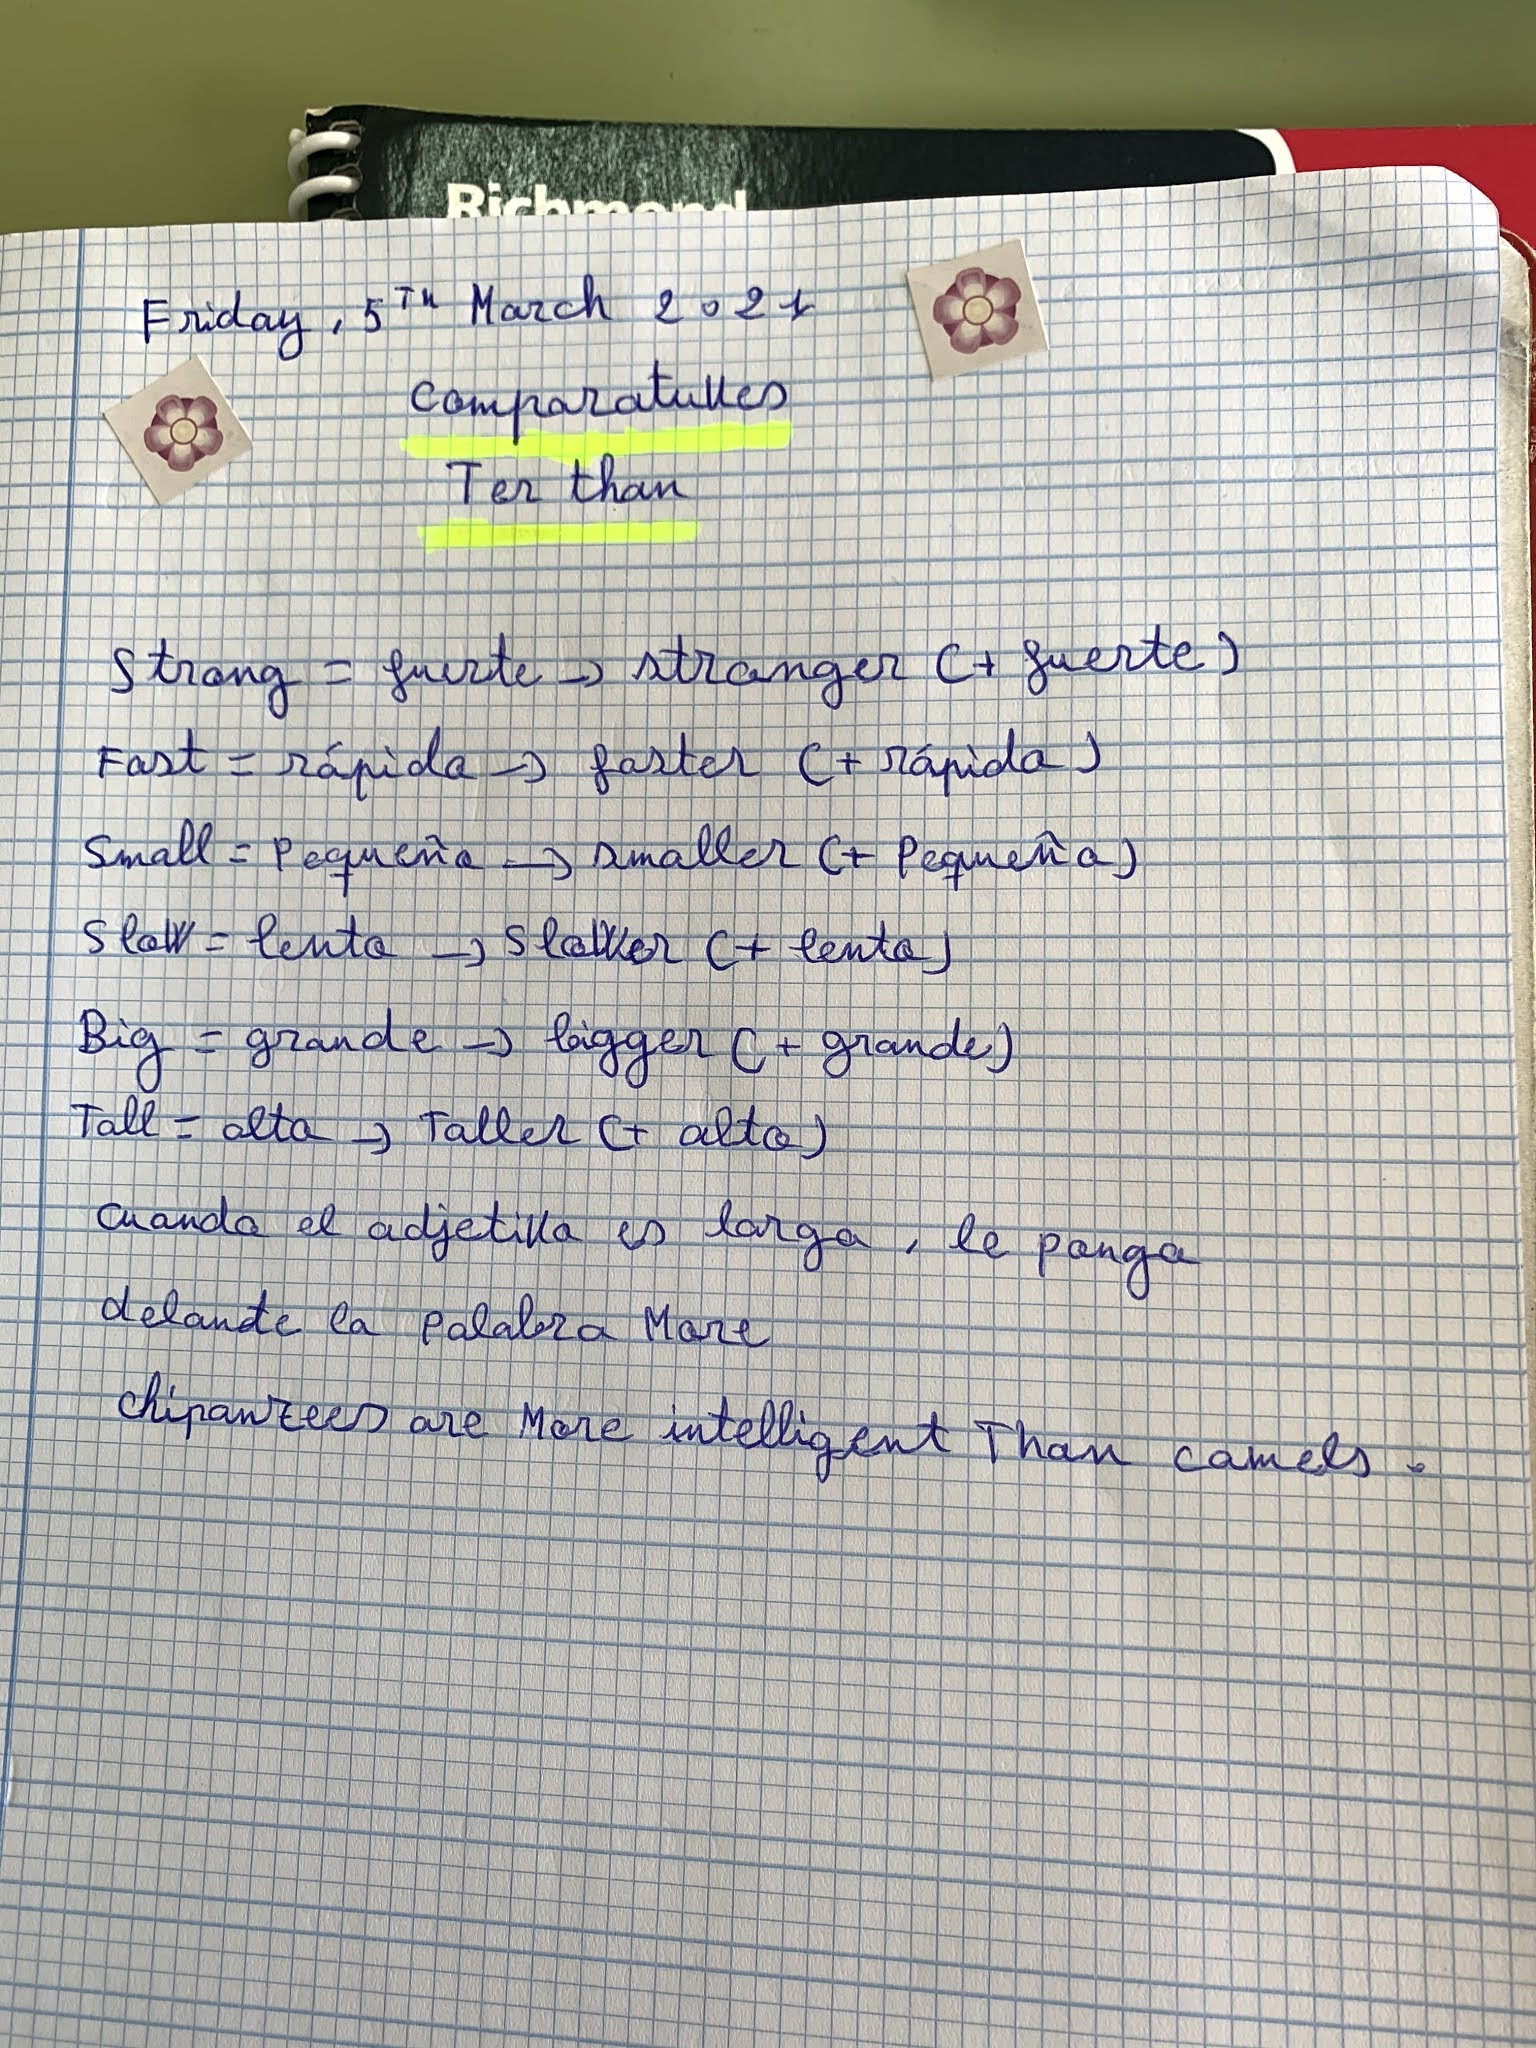 Richmond
Friday, 5Th March 2021
Comparatives
Ter than
Strong = fuerte → stronger (+ fuerte)
Fast = rápido → faster (+ rápido)
Small = Pequeño → smaller (+ Pequeño)
Slow = lento → Slower (+ lento)
Big = grande → bigger (+ grande)
Tall = alto → Taller (+ alto)
Cuando el adjetivo es largo, le pongo
delante la palabra More
Chipanzees are More intelligent Than camels.